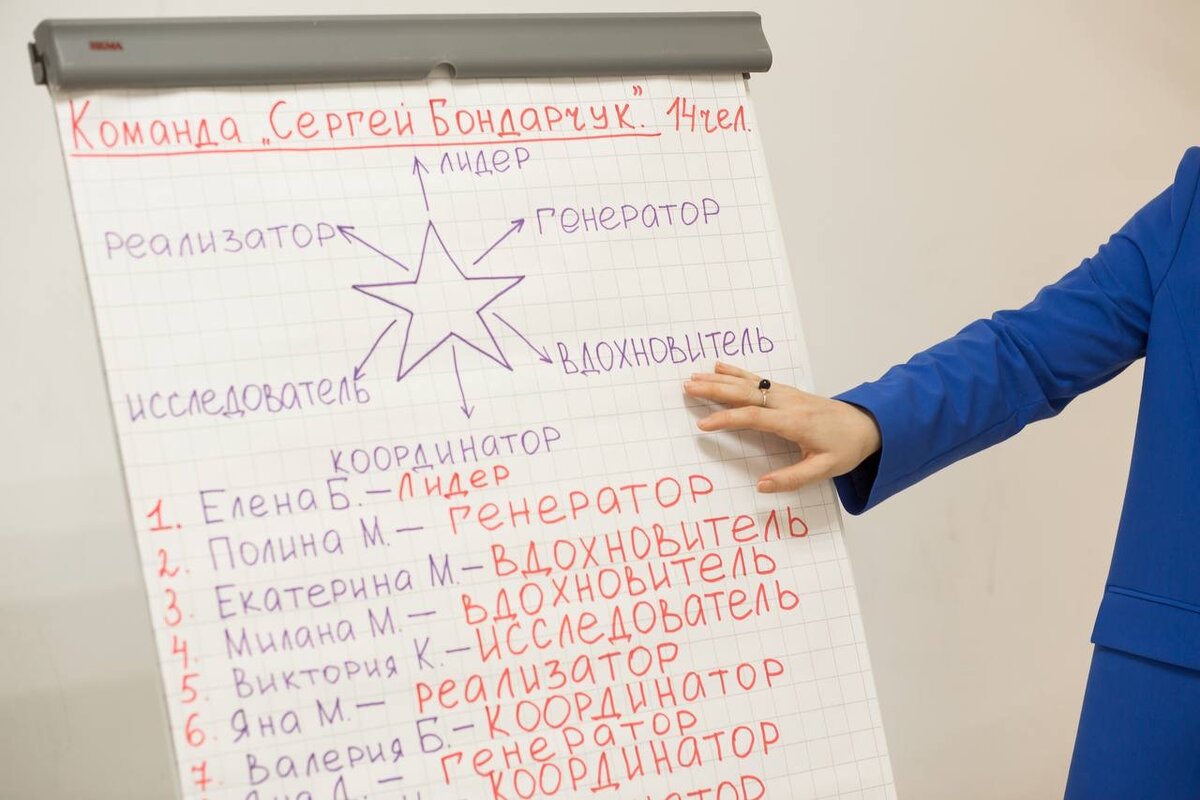 Команда „Сергей Бондарчук." 14чел.
лидер
реализатор
генератор
вдохновитель
исследователь
координатор
1. Елена Б. – лидер
2. Полина М. – генератор
3. Екатерина М. – вдохновитель
4. Милана М. – вдохновитель
5. Виктория К. – исследователь
6. Яна М. – реализатор
7. Валерия Б. – координатор
генератор
координатор